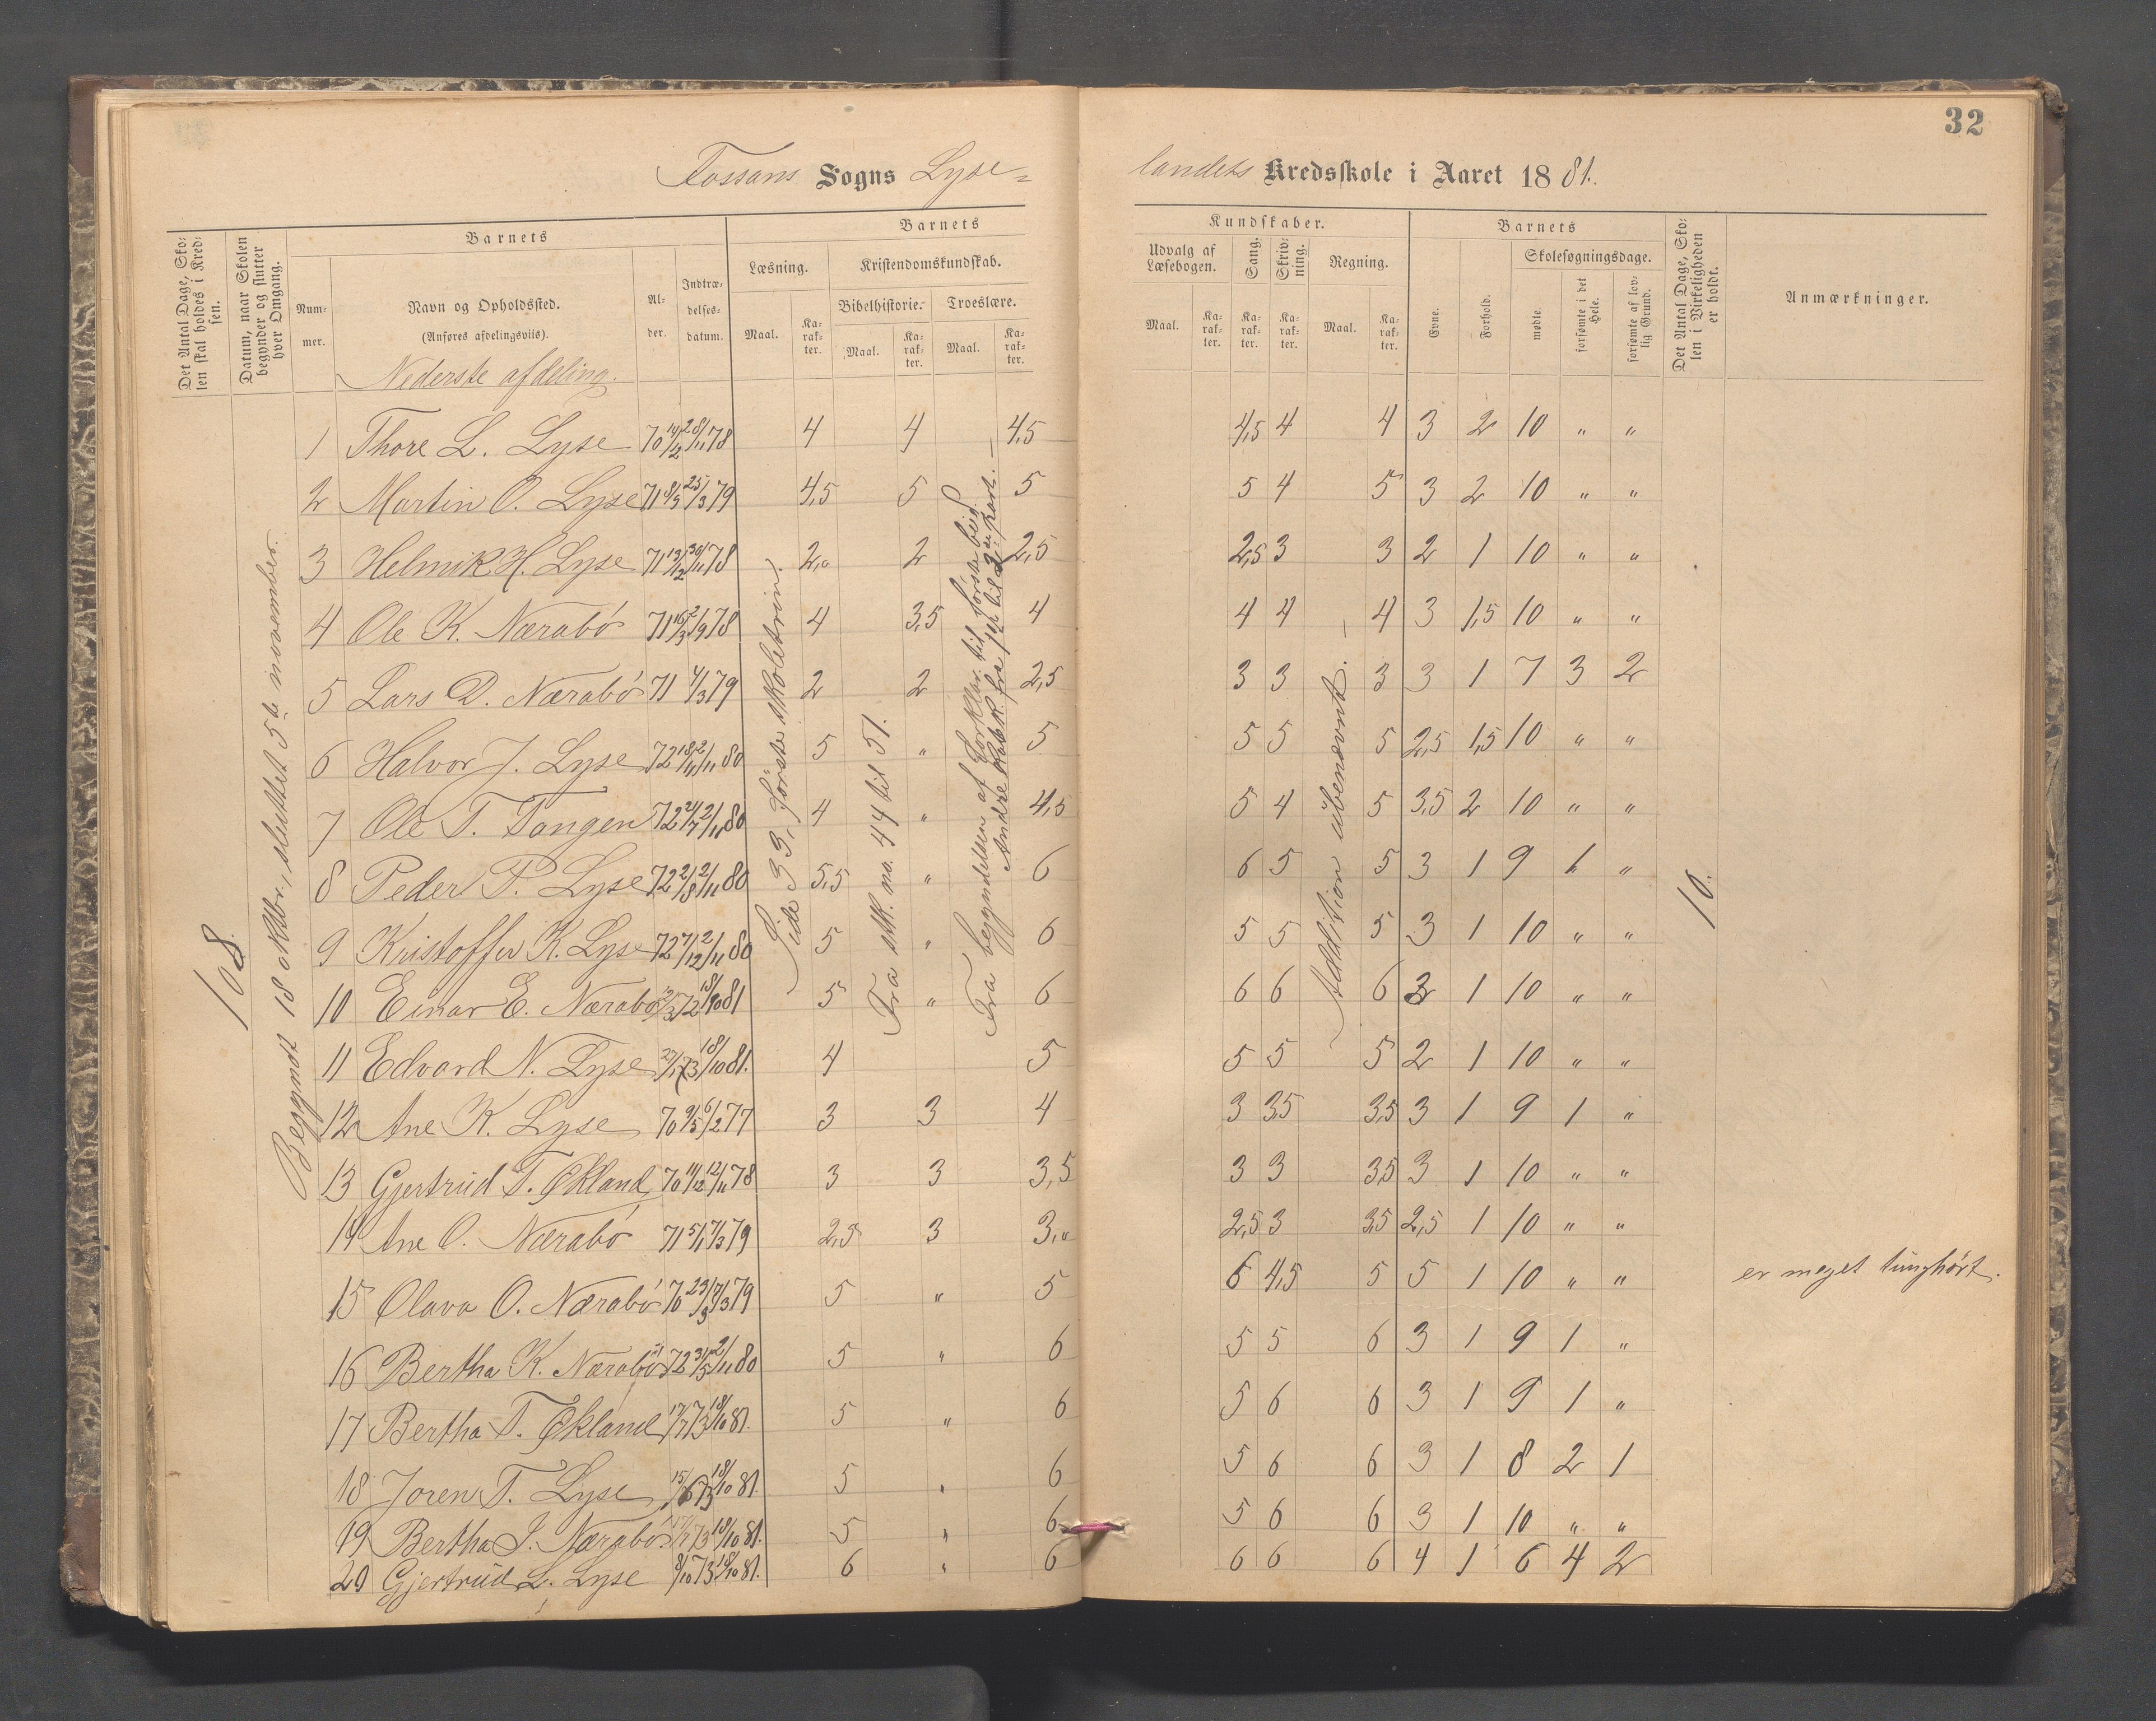 32
Fossans Sogns Lyse=
landets Kredsskole i Aaret 1881.
Det Antal Dage, Sko-
len skal holdes i Kred-
sen.
Datum, naar Skolen
begynder og slutter
hver Omgang.
Barnets
Num-
mer.
Navn og Opholdssted.
(Anføres afdelingsviis).
Al-
der.
Indtræ-
delses-
datum.
Barnets
Læsning.
Kristendomskundskab.
Bibelhistorie.
Troeslære.
Maal.
Ka-
rak-
ter.
Maal.
Ka-
rak-
ter.
Maal.
Ka-
rak-
ter.
Kundskaber.
Udvalg af
Læsebogen.
Sang.
Skriv-
ning.
Regning.
Maal.
Ka-
rak-
ter.
Ka-
rak-
ter.
Ka-
rak-
ter.
Maal.
Ka-
rak-
ter.
Barnets
Evne.
Forhold.
Skolesøgningsdage.
mødte.
forsømte i det
Hele.
forsømte af lov-
lig Grund.
Det Antal Dage, Sko-
len i Virkeligheden
er holdt.
Anmærkninger.
Nederste afdeling.
108.
Begyndt 18 oktbr., sluttet 5te november.
Side 33, første skoletrin.
Fra stk. no. 44 til 51.
Fra begyndelsen af Forklar. til første bud.
Andre
Addition ubenevnt. —
10.
1 Thore L. Lyse 70 14/12 28/11 78 4 4 4,5 4,5 4 4 3 2 10 " "
2 Martin O. Lyse 71 8/5 25/3 79 4,5 5 5 5 4 5 3 2 10 " "
3 Helmik H. Lyse 71 13/12 30/11 78 2,0 2 2,5 2,5 3 3 2 1 10 " "
4 Ole K. Nærabø 71 16/3 2/9 78 4 3,5 4 4 4 4 3 1,5 10 " "
5 Lars D. Nærabø 71 4/3 79 2 2 2,5 3 3 3 3 1 7 3 2
6 Halvor J. Lyse 72 18/11 2/11 80 5 " 5 5 5 5 2,5 1,5 10 " "
7 Ole T. Tangen 72 24/7 2/11 80 4 " 4,5 5 4 5 3,5 2 10 " "
8 Peder P. Lyse 72 2/8 2/11 80 5,5 " 6 6 5 5 3 1 9 1 "
9 Kristoffer K. Lyse 72 7/12 2/11 80 5 " 6 5 5 5 3 1 10 " "
10 Einar E. Nærabø 72 18/10 81 5 " 6 6 6 6 3 1 10 " "
11 Edvard N. Lyse 27/1 73 18/10 81. 4 5 5 5 5 2 1 10 " "
12 Ane K. Lyse 70 9/5 6/2 77 3 3 4 3 3,5 3,5 3 1 9 1 "
13 Gjertrud T. Økland 70 14/12 12/11 78 3 3 3,5 3 3 3,5 3 1 10 " "
14 Ane O. Nærabø 71 5/1 7/3 79 2,5 3 3,0 2,5 3 3,5 2,5 1 10 " "
15 Olava O. Nærabø 70 23/3 4/3 79 5 " 5 6 4,5 5 5 1 10 " " er meget tunghørt.
16 Bertha K. Nærabø 72 31/5 2/11 80 5 " 6 5 5 6 3 1 9 1 "
17 Bertha T. Økland 17/7 73 18/10 81. 5 " 6 5 6 6 3 1 9 1 "
18 Joren T. Lyse 15/6 73 18/10 81. 5 " 6 5 6 6 3 1 8 2 1
19 Bertha J. Nærabø 17/7 73 18/10 81. 5 " 6 5 6 6 3 1 10 " "
20 Gjertrud L. Lyse 8/10 73 18/10 81. 6 " 6 6 6 6 4 1 6 4 2